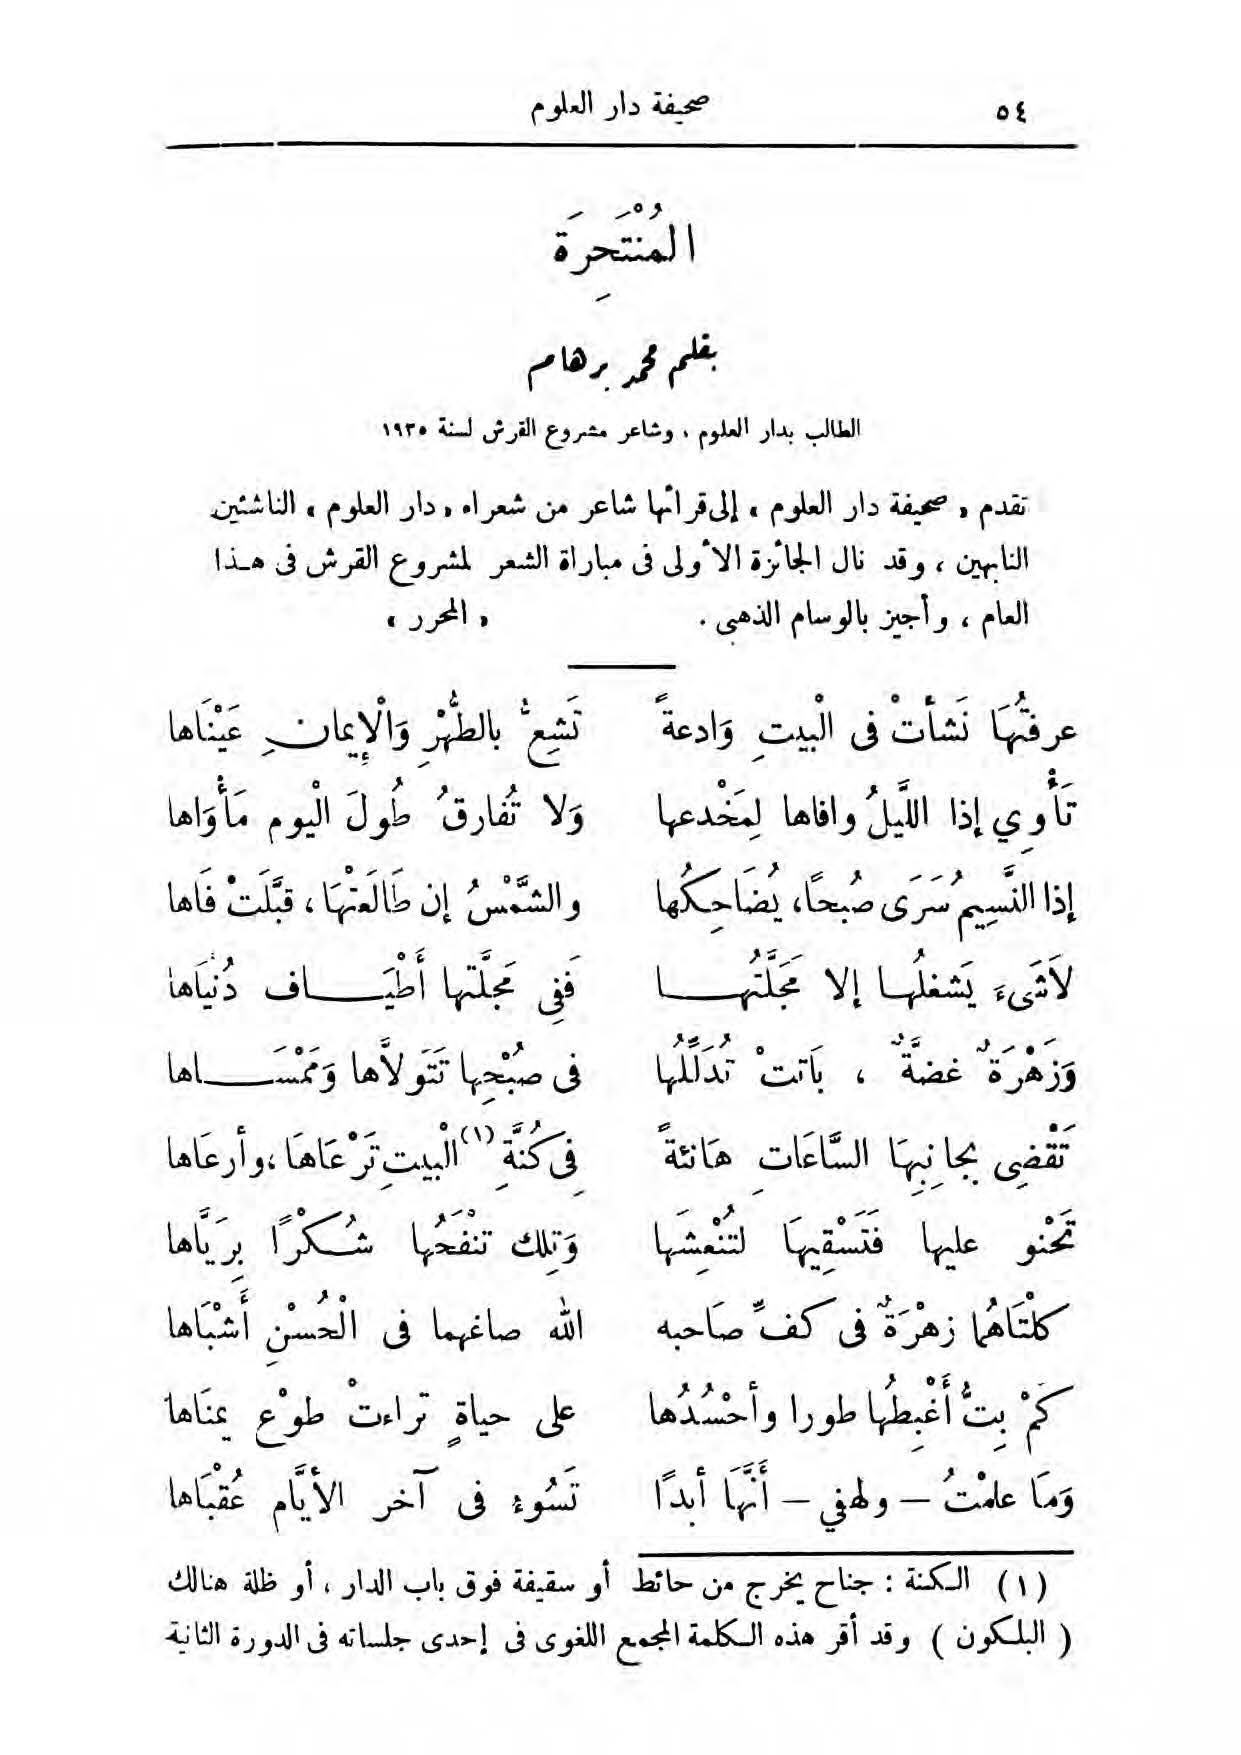 ٥٤
صحيفة دار العلوم
المُنْتَحِرَة
بقلم محمد برهام
الطالب بدار العلوم ، وشاعر مشروع القرش لسنة ١٩٣٥
تقدم « صحيفة دار العلوم » إلى قرائها شاعر من شعراء « دار العلوم » الناشئين
النابهين ، وقد نال الجائزة الأولى فى مباراة الشعر لمشروع القرش فى هـذا
العام ، وأجيز بالوسام الذهبى . « المحرر »
عرفتُهَا نَشأتْ فى الْبيتِ وَادعةً تَشِعُّ بالطُّهْرِ وَالْإِيمانِ عَيْنَاها
تَأْوِي إذا اللَّيلُ وافاها لِمَخْدعها وَلا تُفارقُ طُولَ الْيوم مَأْوَاها
إذا النَّسِيمُ سَرَى صُبحًا، يُضَاحِكُها والشَّمْسُ إن طَالَعَتْهَا ، قبَّلَتْ فَاها
لاَشَىءَ يَشغلُهـا إلا مَجَلَّتُهـــا فَفِي مَجلَّتها أَطْيَــاف دُنْيَاها
وَزهْرَةٌ غضةٌ ، بَاتتْ تُدَلِّلُها فى صبْحِها تَتَولاَّها وَمَمْسَــاها
تَقْضِى بجانِبِهَا السَّاعَاتِ هَانئةً فِى كُنَّةِ (١) الْبيتِ تَرْعَاهَا ، وأرعَاها
تَحْنو عليها فَتَسْقِيهَا لتُنْعِشَها وَتِلك تنْفَحُها شُكْرًا بِرَيَّاها
كلْتَاهُما زهْرَةٌ فى كفِّ صَاحبه الله صاغهما فى الْحُسْنِ أَشْبَاها
كمْ بِتُّ أَغْبِطُها طورا وأحْسُدُها على حياةٍ تراءتْ طوْع يمنَاها
وَمَا علمْتُ – ولهفي – أَنَّهَا أبدًا تَسُوءُ فى آخر الأيَّام عُقْبَاها
(١) الـكنة : جناح يخرج من حائط أو سقيفة فوق باب الدار ، أو ظلة هنالك
( البلـكون ) وقد أقر هذه الـكلمة المجمع اللغوى فى إحدى جلساته فى الدورة الثانية